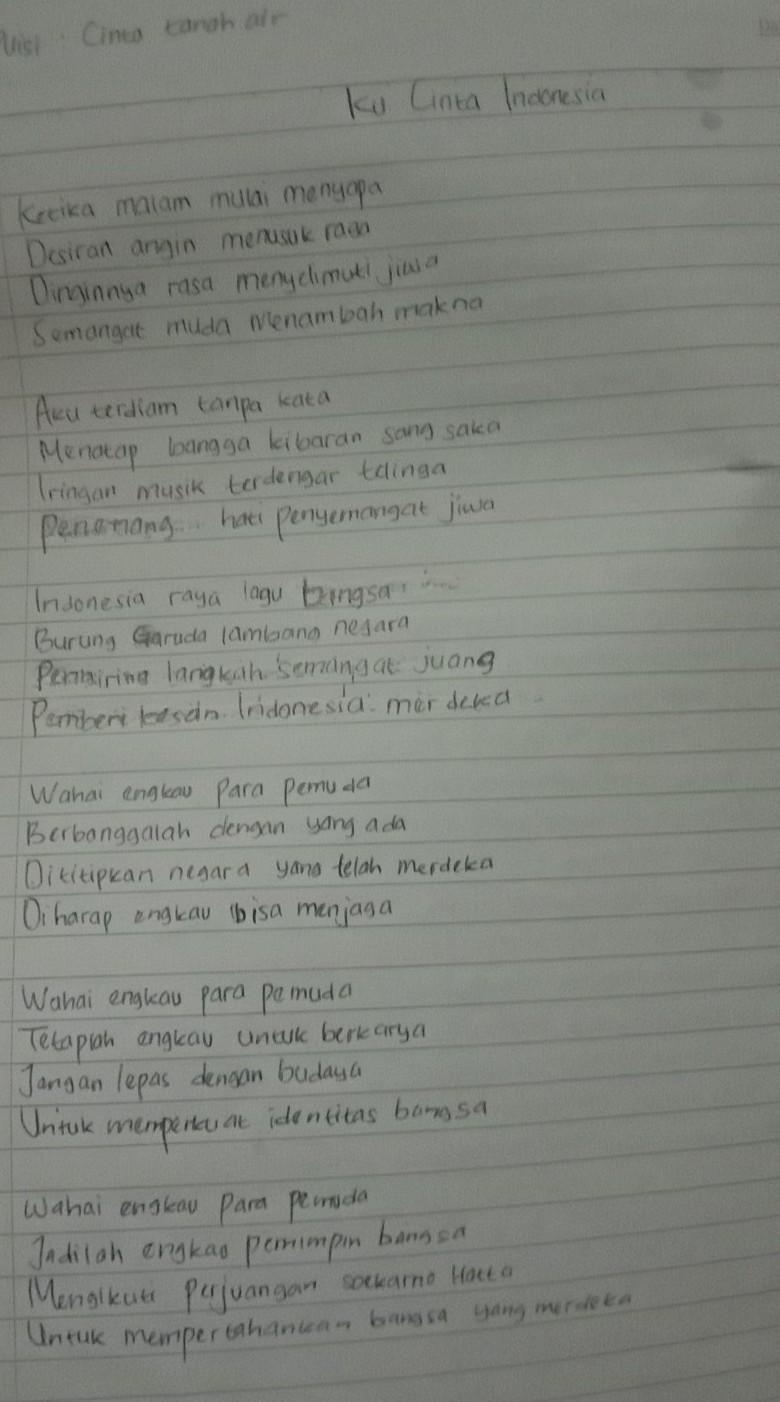 Puisi : Cinta tanah air
Ku Cinta Indonesia
Ketika malam mulai menyapa
Desiran angin menusuk raga
Dinginnya rasa menyelimuti jiwa
Semangat muda menambah makna
Aku terdiam tanpa kata
Menatap bangga kibaran sang saka
Iringan musik terdengar telinga
Penenang... hati penyemangat jiwa
Indonesia raya lagu bangsa
Burung Garuda lambang negara
Pengiring langkah semangat juang
Pemberi kesan Indonesia merdeka
Wahai engkau para pemuda
Berbanggalah dengan yang ada
Dititipkan negara yang telah merdeka
Diharap engkau bisa menjaga
Wahai engkau para pemuda
Tetaplah engkau untuk berkarya
Jangan lepas dengan budaya
Untuk memperkuat identitas bangsa
Wahai engkau para pemuda
Jadilah engkau pemimpin bangsa
Mengikuti perjuangan soekarno Hatta
Untuk mempertahankan bangsa yang merdeka